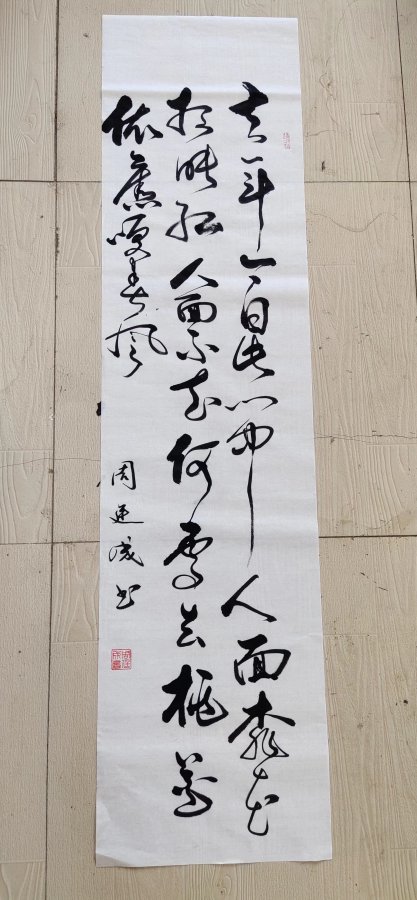 去年今日此门中人面桃花
相映红人面不知何處去桃花
依舊咲春風
周連成书